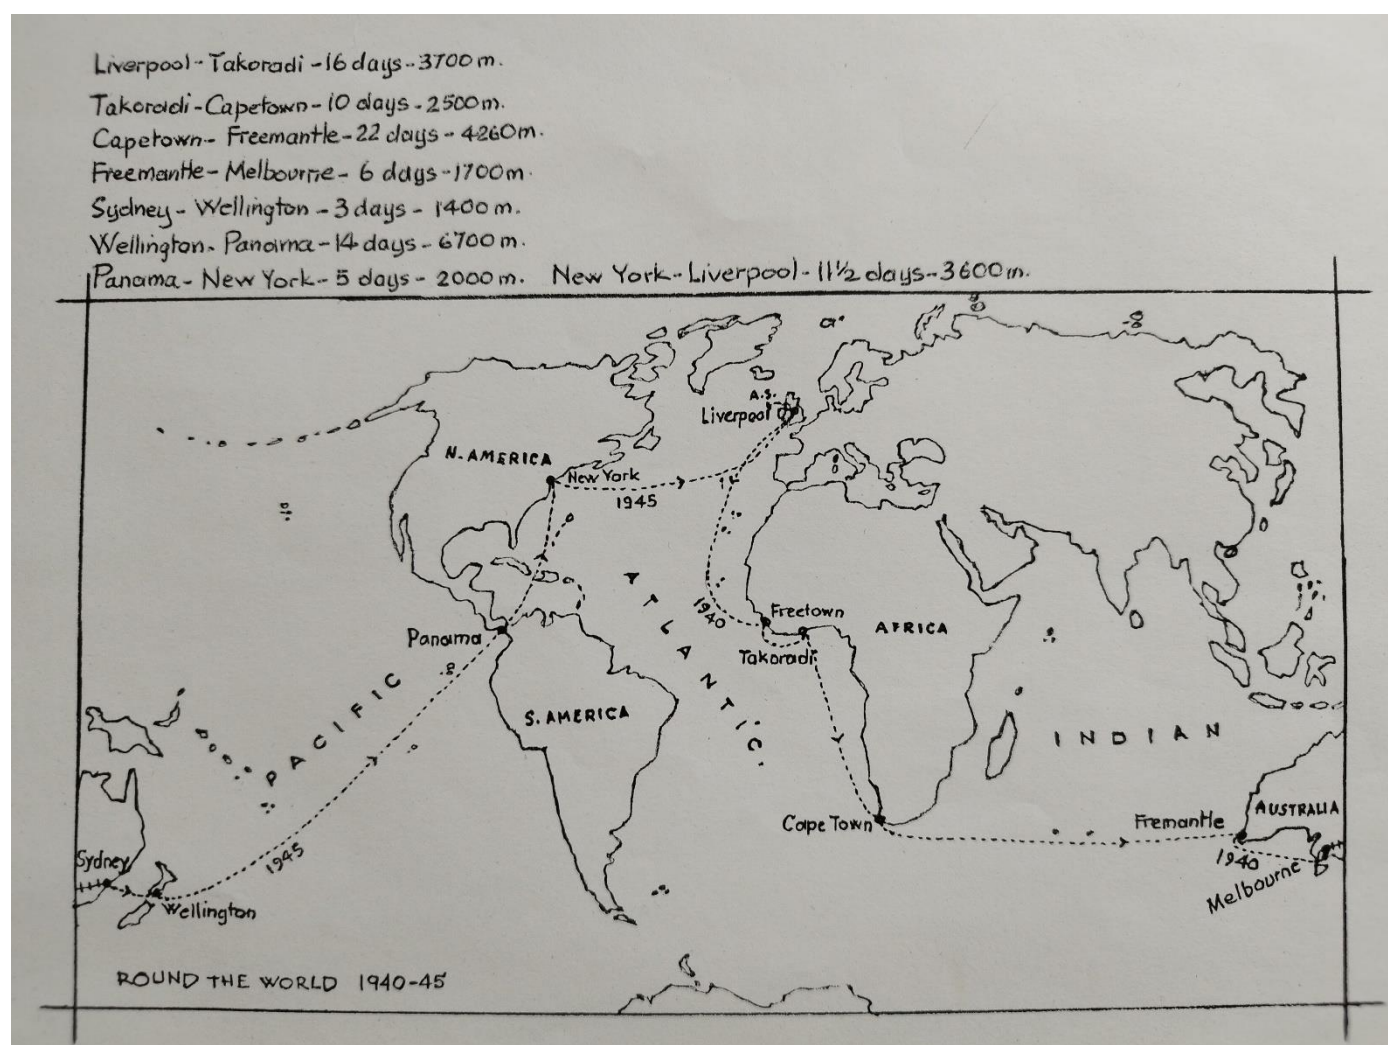 Liverpool - Takoradi - 16 days - 3700 m.
Takoradi - Capetown - 10 days - 2500 m.
Capetown - Freemantle - 22 days - 4260 m.
Freemantle - Melbourne - 6 days - 1700 m.
Sydney - Wellington - 3 days - 1400 m.
Wellington - Panama - 14 days - 6700 m.
Panama - New York - 5 days - 2000 m. New York - Liverpool - 11½ days - 3600 m.
A.S.
Liverpool
N. AMERICA
New York
1945
ATLANTIC
1940
Freetown
AFRICA
Takoradi
Panama
PACIFIC
S. AMERICA
INDIAN
Cape Town
Fremantle
AUSTRALIA
1940
Melbourne
Sydney
1945
Wellington
ROUND THE WORLD 1940-45